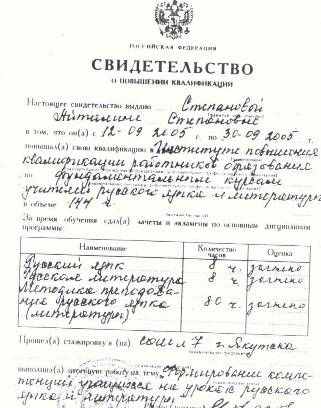 РОССИЙСКАЯ ФЕДЕРАЦИЯ
СВИДЕТЕЛЬСТВО
О ПОВЫШЕНИИ КВАЛИФИКАЦИИ
Настоящее свидетельство выдано Степановой
Айталине Степановне
в том, что он(а) с 12-09 2005 г. по 30-09 2005 г.
повышал(а) свою квалификацию в Институте повышения
квалификации работников образования
по фундаментальным курсам
учителей русского языка и литературы
в объеме 144 ч
За время обучения сдал(а) зачеты и экзамены по основным дисциплинам
программы:
Наименование Количество часов Оценка
Русский язык 8 ч. зачтено
Русская литература 8 ч. зачтено
Методика преподава-
ние русского языка 80 ч. зачтено
(литературы)
Прошел(а) стажировку в (на) сош №7 г. Якутска
выполнил(а) итоговую работу на тему Формирование компе-
тенций учащихся на уроках русского
языка и литературы